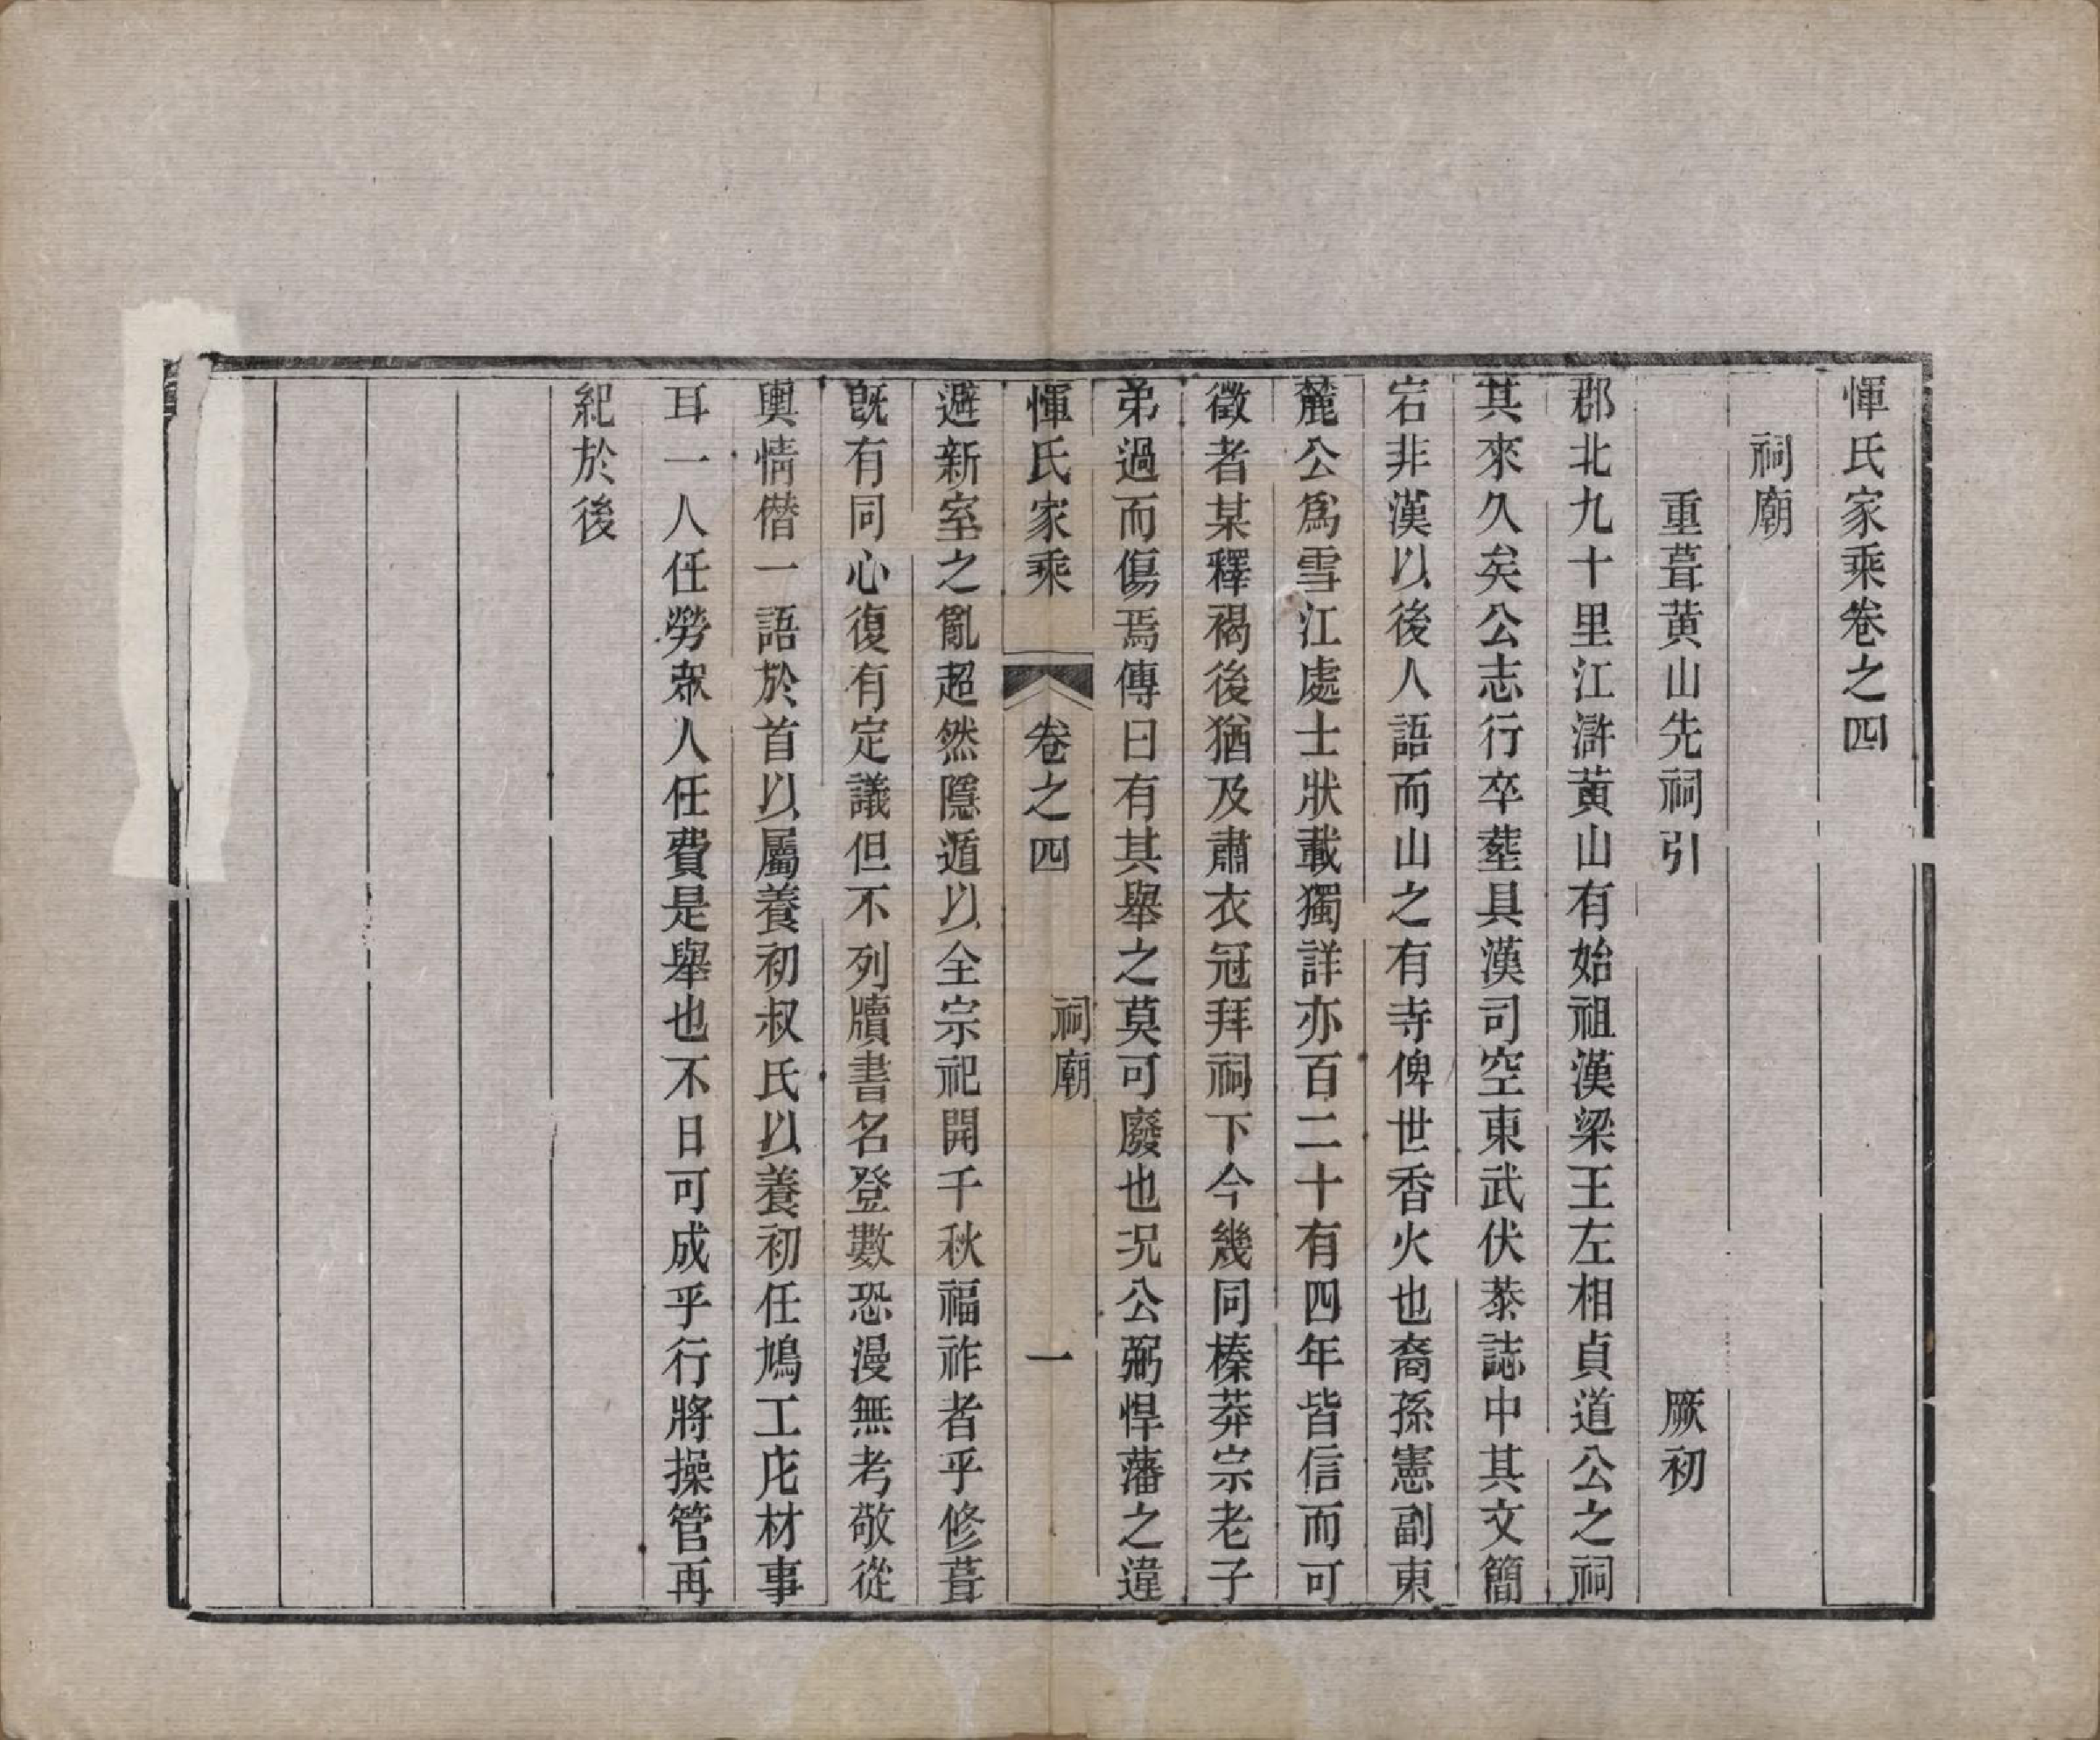 惲氏家乘卷之四
祠廟
重葺黃山先祠引
厥初
郡北九十里江滸黃山有始祖漢梁王左相貞道公之祠
其來久矣公志行卒塟具漢司空東武伏恭誌中其文簡
宕非漢以後人語而山之有寺俾世香火也裔孫憲副東
麓公爲雪江處士狀載獨詳亦百二十有四年皆信而可
徵者某釋褐後猶及肅衣冠拜祠下今幾同榛莽宗老子
弟過而傷焉傳曰有其舉之莫可廢也况公弼悍藩之違
惲氏家乘
卷之四
祠廟
一
避新室之亂超然隱遁以全宗祀開千秋福祚者乎修葺
旣有同心復有定議但不列牘書名登數恐漫無考敬從
輿情僣一語於首以屬養初叔氏以養初任鳩工庀材事
耳一人任勞衆人任費是舉也不日可成乎行將操管再
紀於後